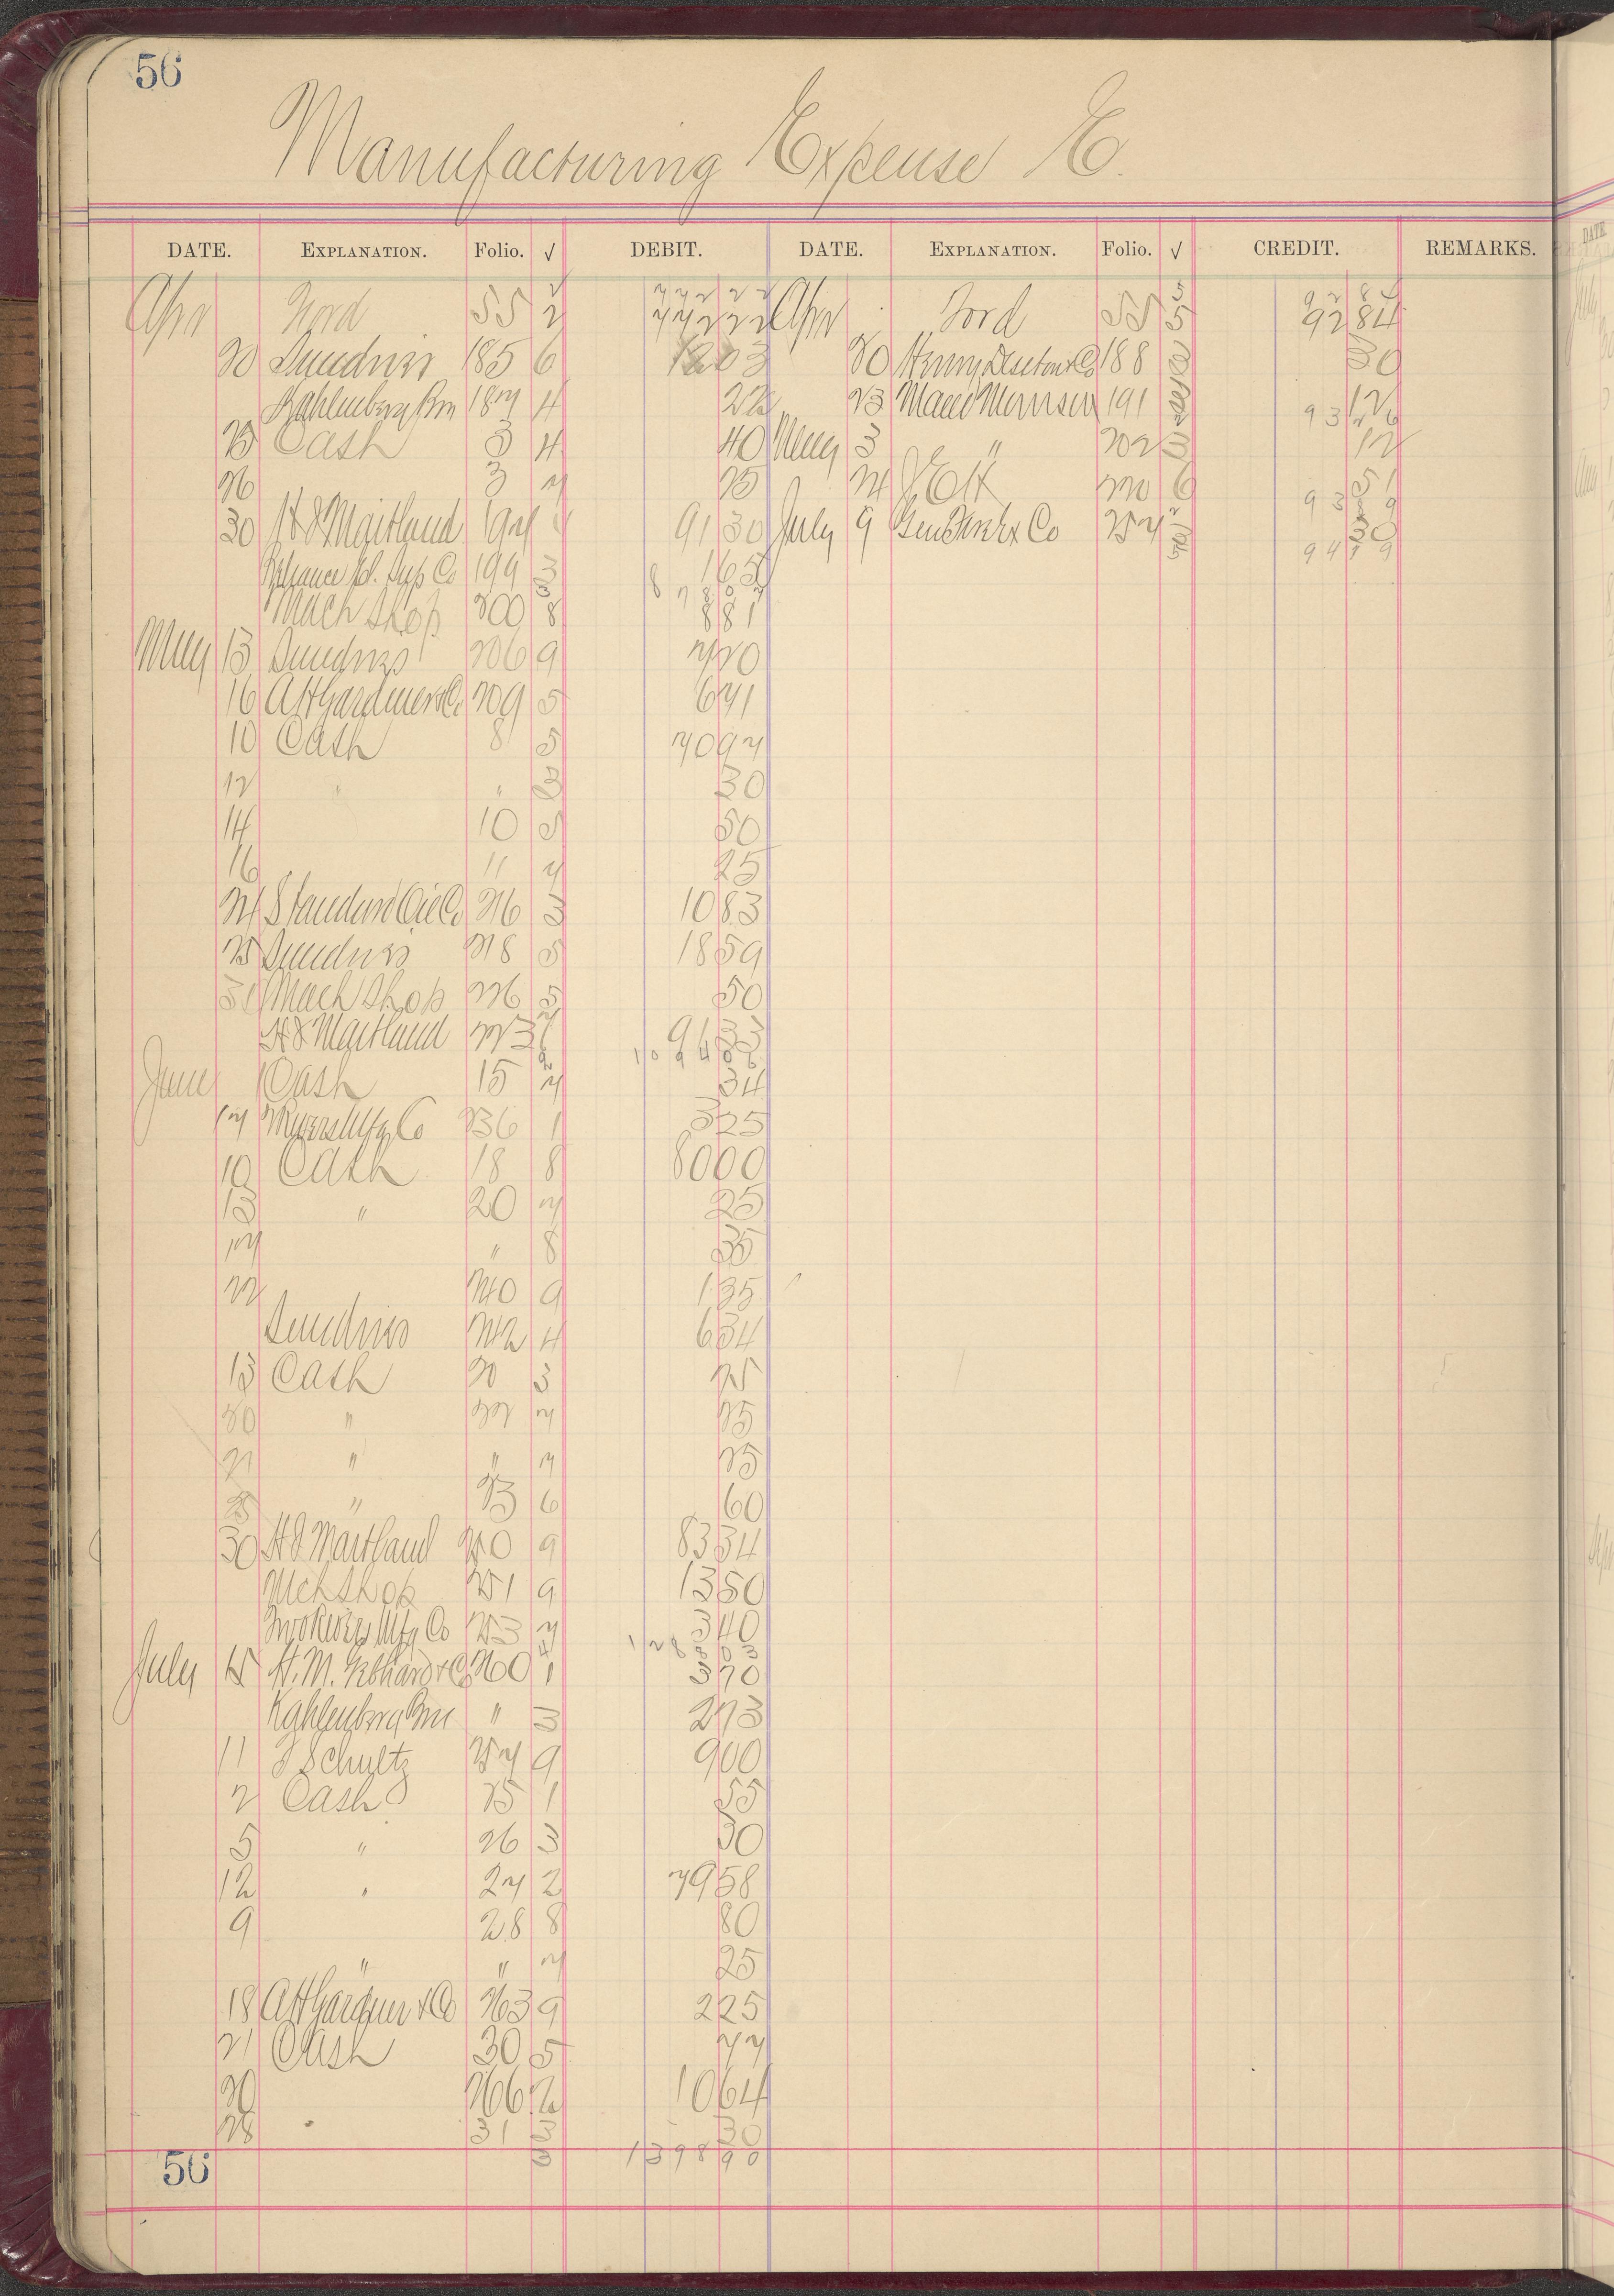 56
Manufacturing Expense E.
DATE. EXPLANATION. Folio. √ DEBIT. DATE. EXPLANATION. Folio. √ CREDIT. REMARKS.
Apr Ford 55 2 772 22 Apr Ford 55 5 92 84
20 Sundries 185 6 12 03 20 Henry 188 30
Kahlenberg Bros 187 4 22 23 191 12
93 26
25 Cash 3 4 40 May 3 " 202 3 12
26 3 7 25 24 220 6 51
93 89
30 H & Maitland 197 91 30 July 9 Co 257 30
94 19
Reliance Co 199 3 1 65
Mach Shop 200 8 8 81
May 13 Sundries 206 9 7 20
16 A H Gardner & Co 209 5 6 71
10 Cash 8 5 70 97
12 " " 3 30
14 10 5 50
16 11 7 25
24 Standard Oil Co 216 3 10 83
25 Sundries 218 5 18 59
31 Mach Shop 226 5 50
H & Maitland 223 91 33
June 1 Cash 15 7 34
17 Mfg Co 236 1 3 25
10 Cash 18 8 80 00
13 " 20 7 25
17 " 8 35
22 240 9 1 35
Sundries 242 4 6 34
13 Cash 20 3 25
20 " 22 7 25
21 " " 7 25
25 " 23 6 60
30 H & Maitland 250 9 83 34
Mch Shop 251 9 13 50
Two Rivers Mfg Co 253 7 3 40
128 8 03
July 15 H. M. & Co 260 1 3 70
Kahlenberg Bros " 3 2 73
11 J Schultz 257 9 9 00
2 Cash 25 1 55
5 " 26 3 30
12 " 27 2 79 58
9 28 8 80
" " 7 25
18 A H Gardner & Co 263 9 2 25
21 Cash 30 5 77
20 266 2 10 64
28 31 3 30
1398 90
56